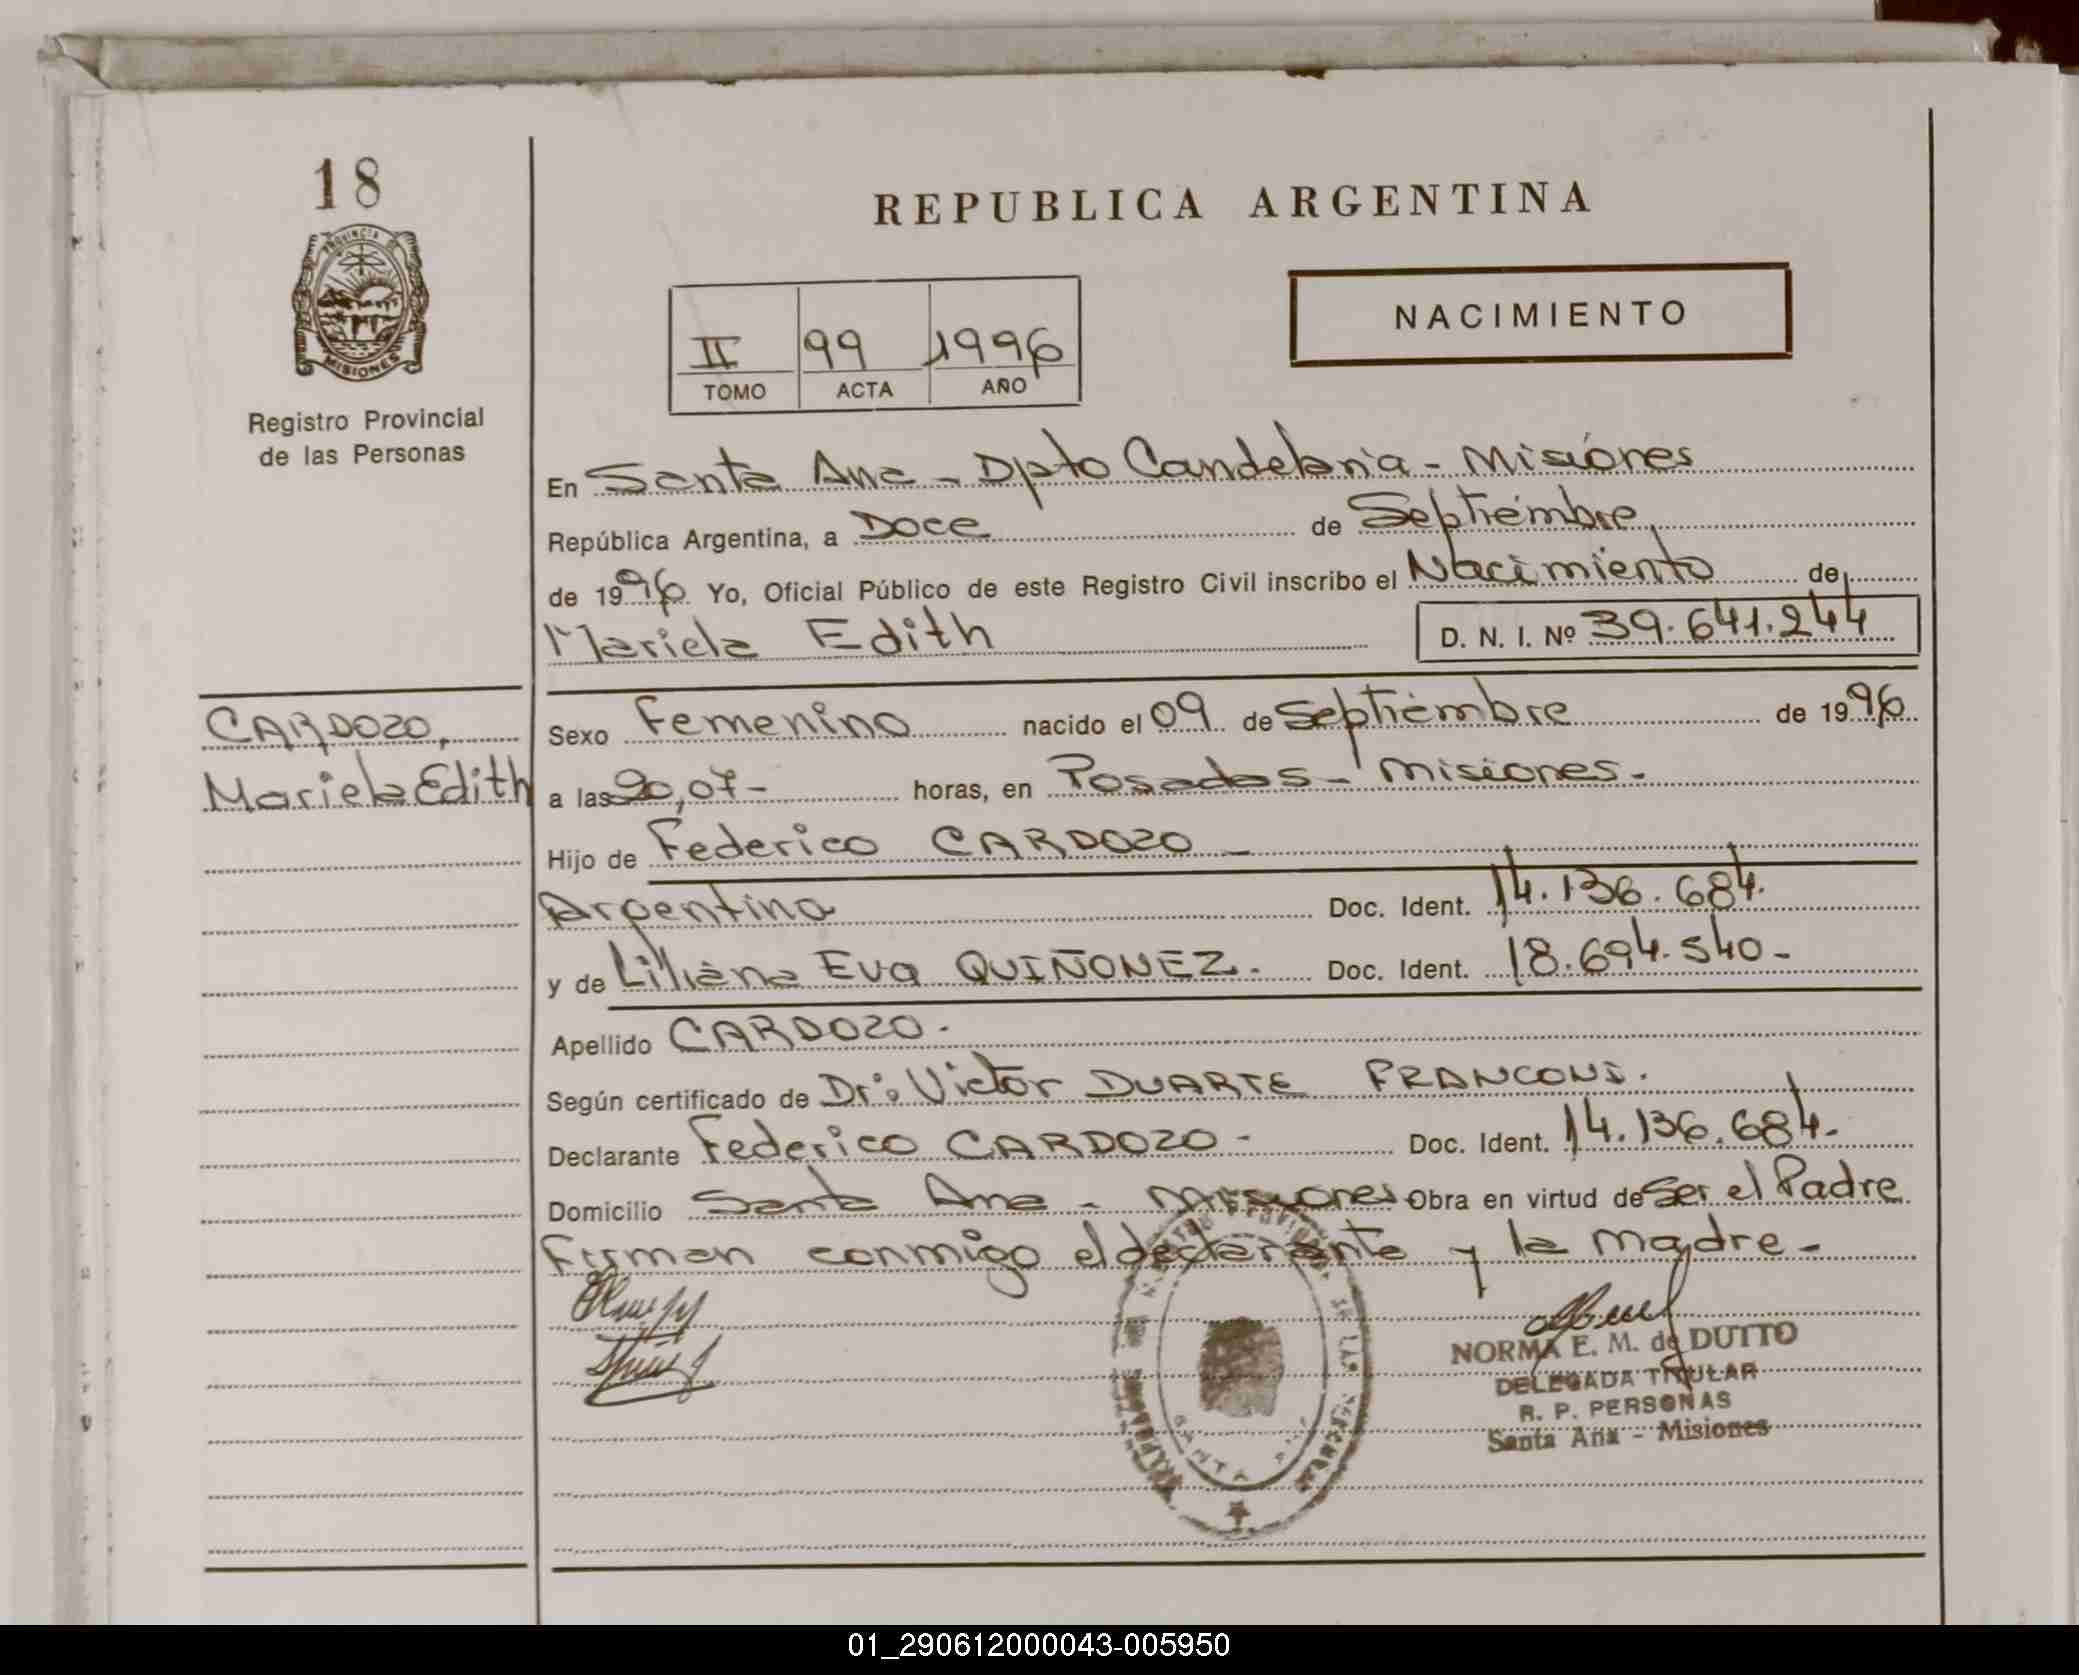 18
PROVINCIA DE
MISIONES
Registro Provincial
de las Personas
REPUBLICA ARGENTINA
NACIMIENTO
II 99 1996
TOMO ACTA AÑO
En Santa Ana - Dpto Candelaria - Misiones
República Argentina, a Doce de Septiembre
de 1996 Yo, Oficial Público de este Registro Civil inscribo el Nacimiento de
Mariela Edith D. N. I. Nº 39.641.244
CARDOZO,
Mariela Edith
Sexo Femenino nacido el 09 de Septiembre de 1996
a las 20,07- horas, en Posadas - Misiones.
Hijo de Federico CARDOZO -
Argentina Doc. Ident. 14.136.684.
y de Liliana Eva QUIÑONEZ. Doc. Ident. 18.694.540-
Apellido CARDOZO.
Según certificado de Dr: Victor DUARTE FRANCONI.
Declarante Federico CARDOZO - Doc. Ident. 14.136.684.
Domicilio Santa Ana - Misiones Obra en virtud de Ser el Padre
Firman conmigo el declarante y la madre -
NORMA E. M. de DUTTO
DELEGADA TITULAR
R. P. PERSONAS
Santa Ana - Misiones
SANTA ANA
01_290612000043-005950